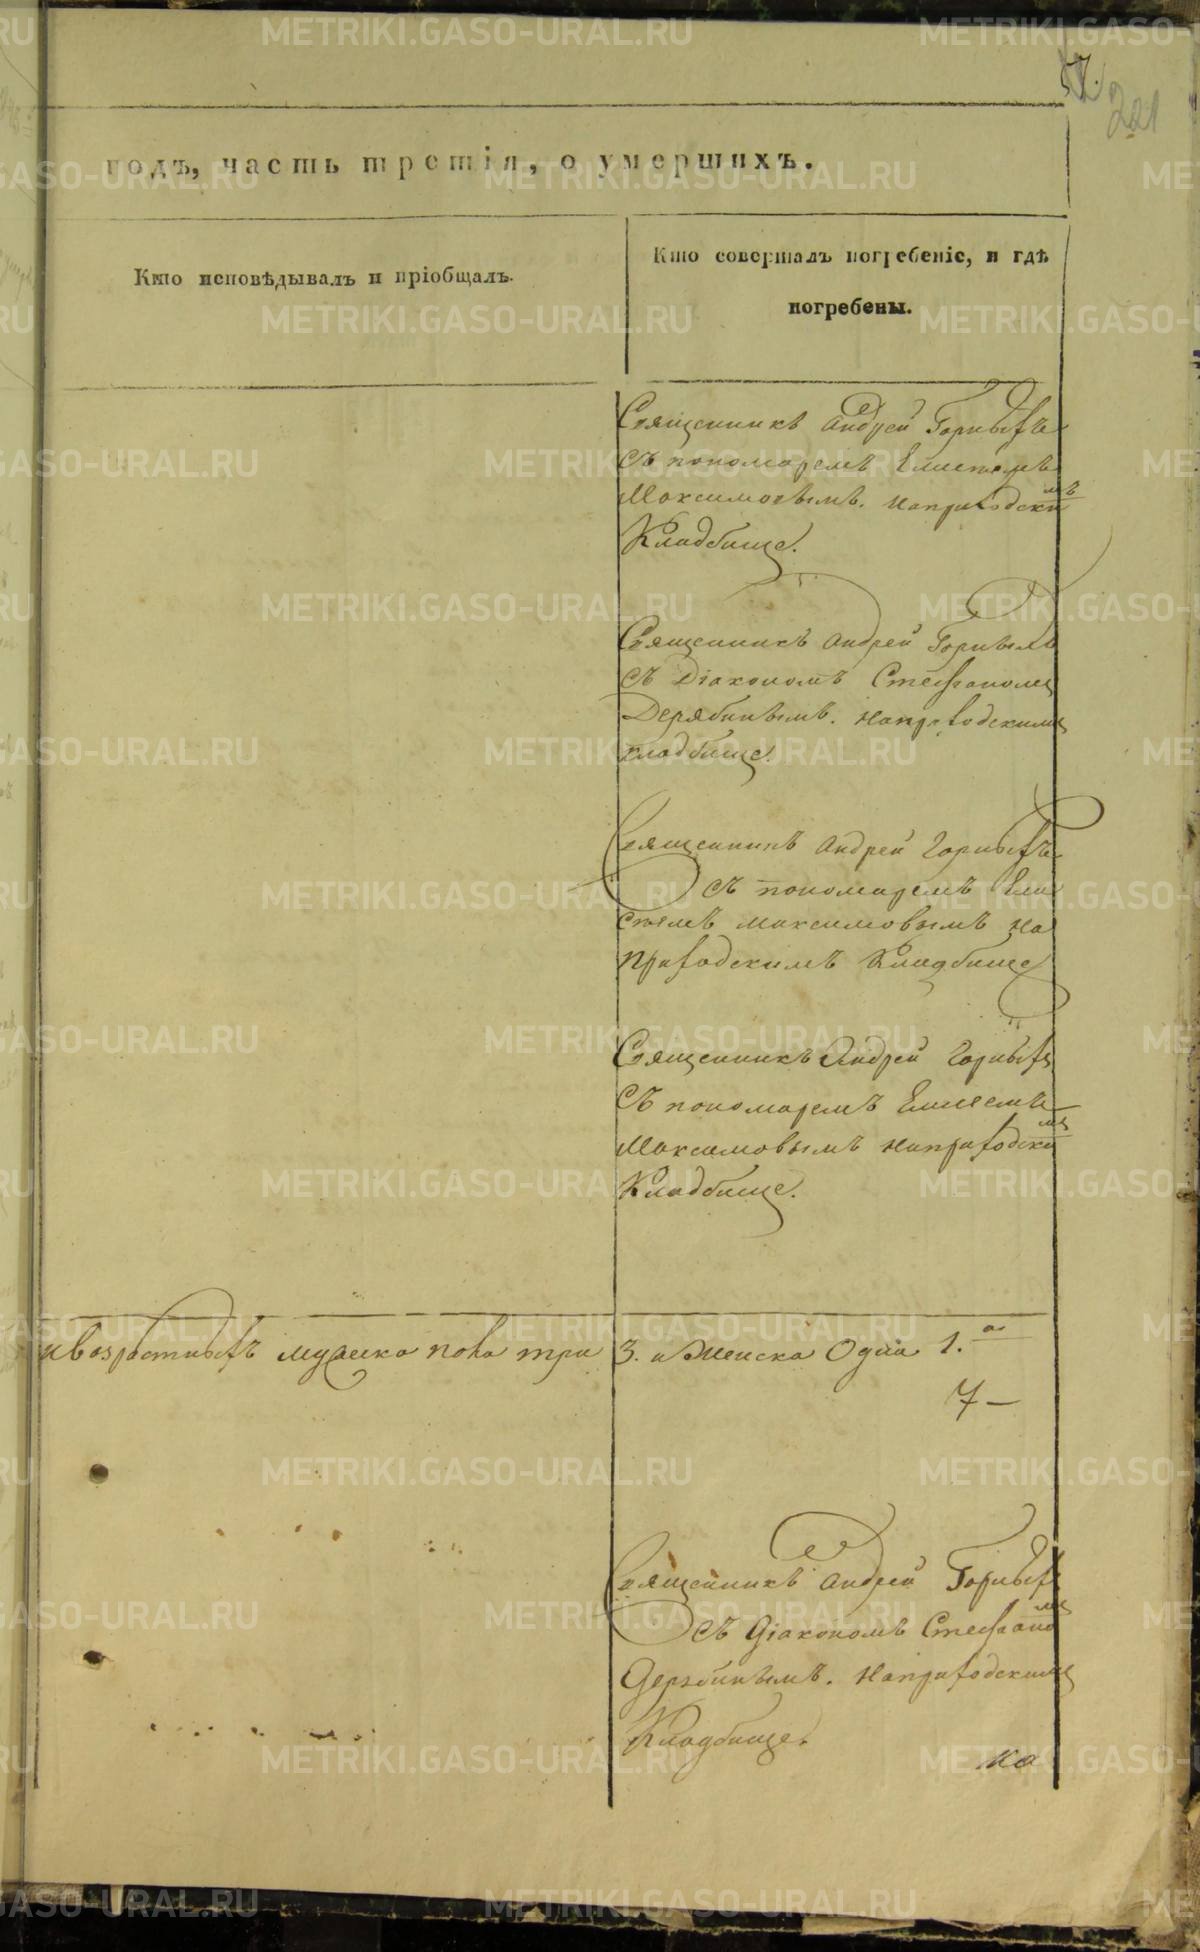 7.
221
годъ, часть третія, о умершихъ.
Кто исповѣдывалъ и пріобщалъ.
Кто совершалъ погребеніе, и гдѣ
погребены.
Священникъ Андрей Горныхъ
съ пономаремъ Елисеемъ
Максимовымъ. наприходскимъ
Кладбище.
Священникъ Андрей Горныхъ
съ Діакономъ Стефаномъ
Дерябинымъ. наприходскимъ
кладбище.
Священникъ Андрей Горныхъ
съ пономаремъ Ели
сеемъ Максимовымъ на
приходскимъ Кладбище
Священникъ Андрей Горныхъ
съ пономаремъ Елисеемъ
Максимовымъ наприходскимъ
Кладбище.
ивозрастныхъ мужска пола три 3. и Женска Одна 1.а
7 —
Священникъ Андрей Горныхъ
съ Діакономъ Стефаномъ
Дерябинымъ. наприходскимъ
Кладбище.
на
METRIKI.GASO-URAL.RU